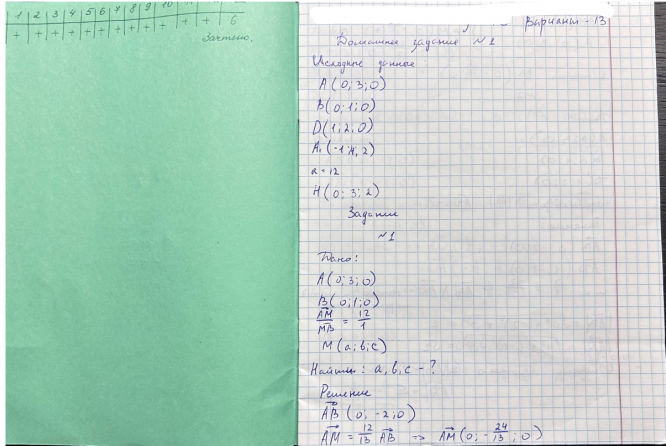 1 2 3 4 5 6 7 8 9 10
+ + + + + + + + + + + + + 6
Зачтено.
Вариант - 13
Домашнее задание №1
Исходные данные
A(0; 3; 0)
B(0; 1; 0)
D(1; 2; 0)
A₁(-1; 4; 2)
α = 12
H(0; 3; 2)
Задание
№1
Дано:
A(0; 3; 0)
B(0; 1; 0)
AM/MB = 12/1
M(a; b; c)
Найти: a, b, c - ?
Решение
AB(0; -2; 0)
AM = 12/13 AB ⇒ AM(0; -24/13; 0)